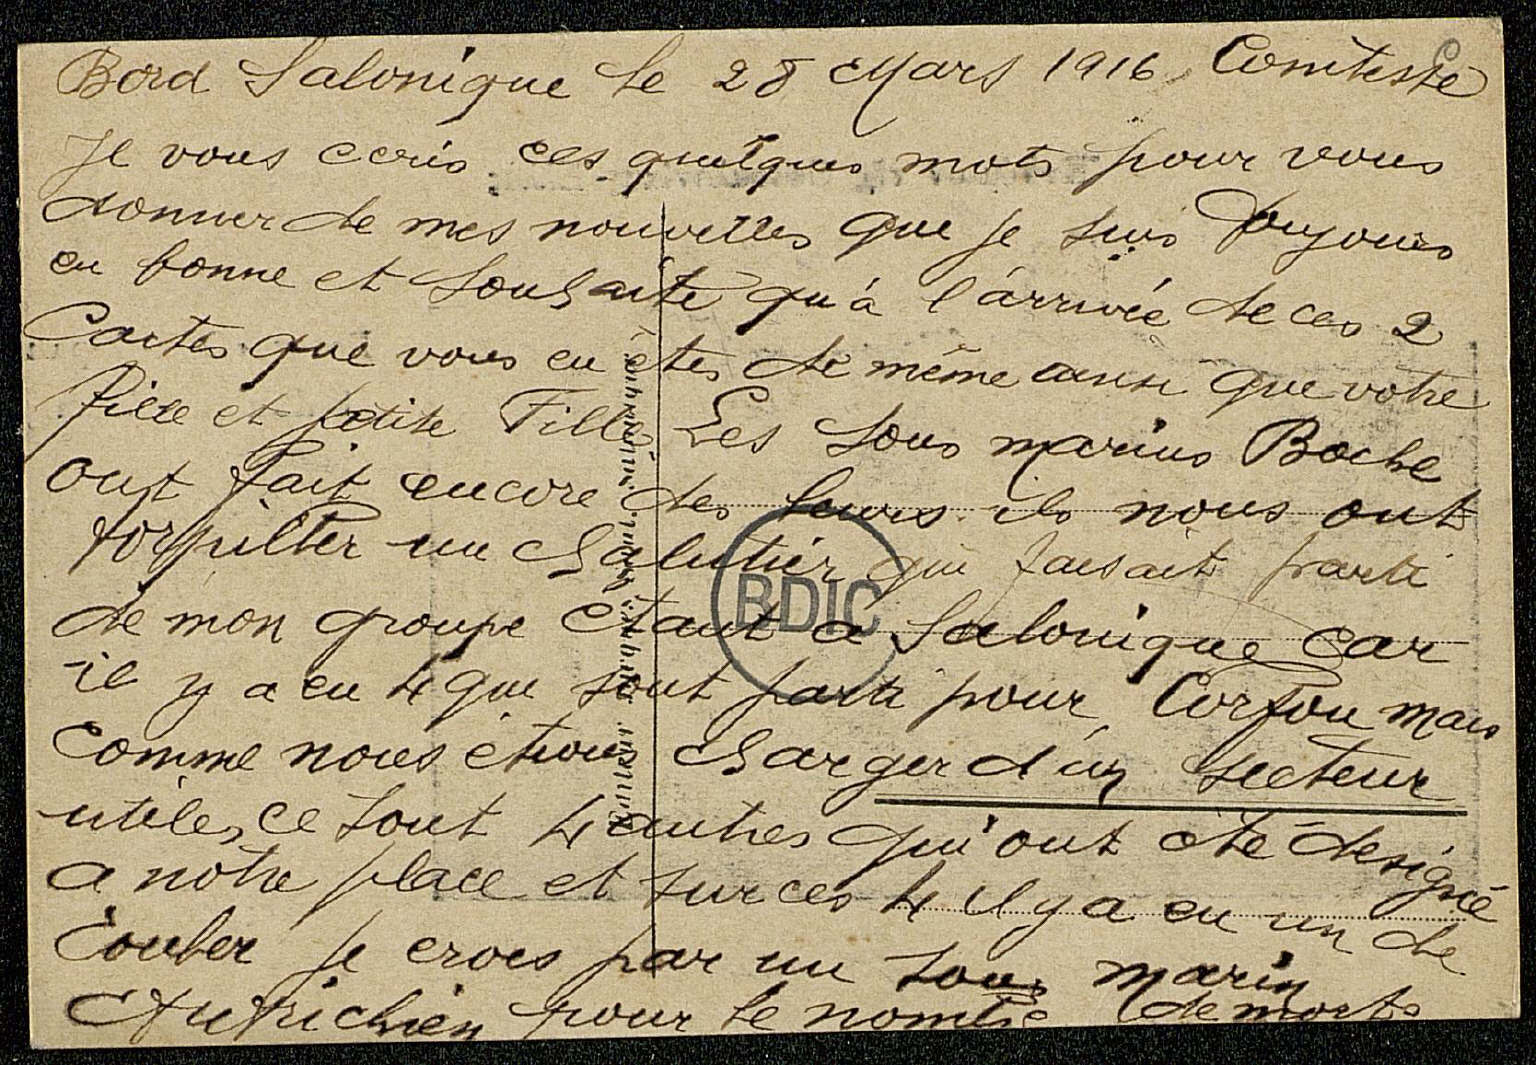 Bord Salonique le 28 Mars 1916 Comtesse
Je vous ecris ces quelques mots pour vous
donner de mes nouvelles que je suis toujours
en bonne et souhaite qu'à l'arrivée de ces 2
Cartes que vous en êtes de même ainsi que votre
fille et petite Fille Les sous marins Boche
ont fait encore des leurs ils nous ont
torpiller un chalutier qui faisait parti
de mon groupe etant a Salonique car
il y a eu 4 que sont parti pour Corfou mais
comme nous étions charger d'un secteur
utile, ce sont 4 autres qui ont été désigné
a nôtre place et sur ces 4 il y a eu un de
Couler je crois par un sous marin
Autrichien pour le nombre de morts
BDIC